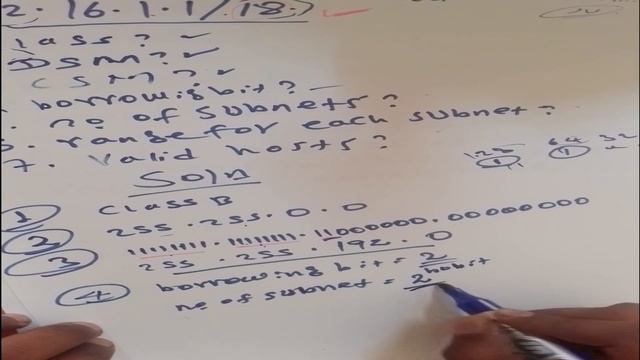 2.16.1.1/18
lass?
DSM?
CSM?
borrowing bit?
no of subnets?
range for each subnet?
7. Valid hosts?
128 64 32
1 1
Soln
1 Class B
2 255.255.0.0
3 11111111.11111111.11000000.00000000
255.255.192.0
4 borrowing bit = 2
no of subnet = 2